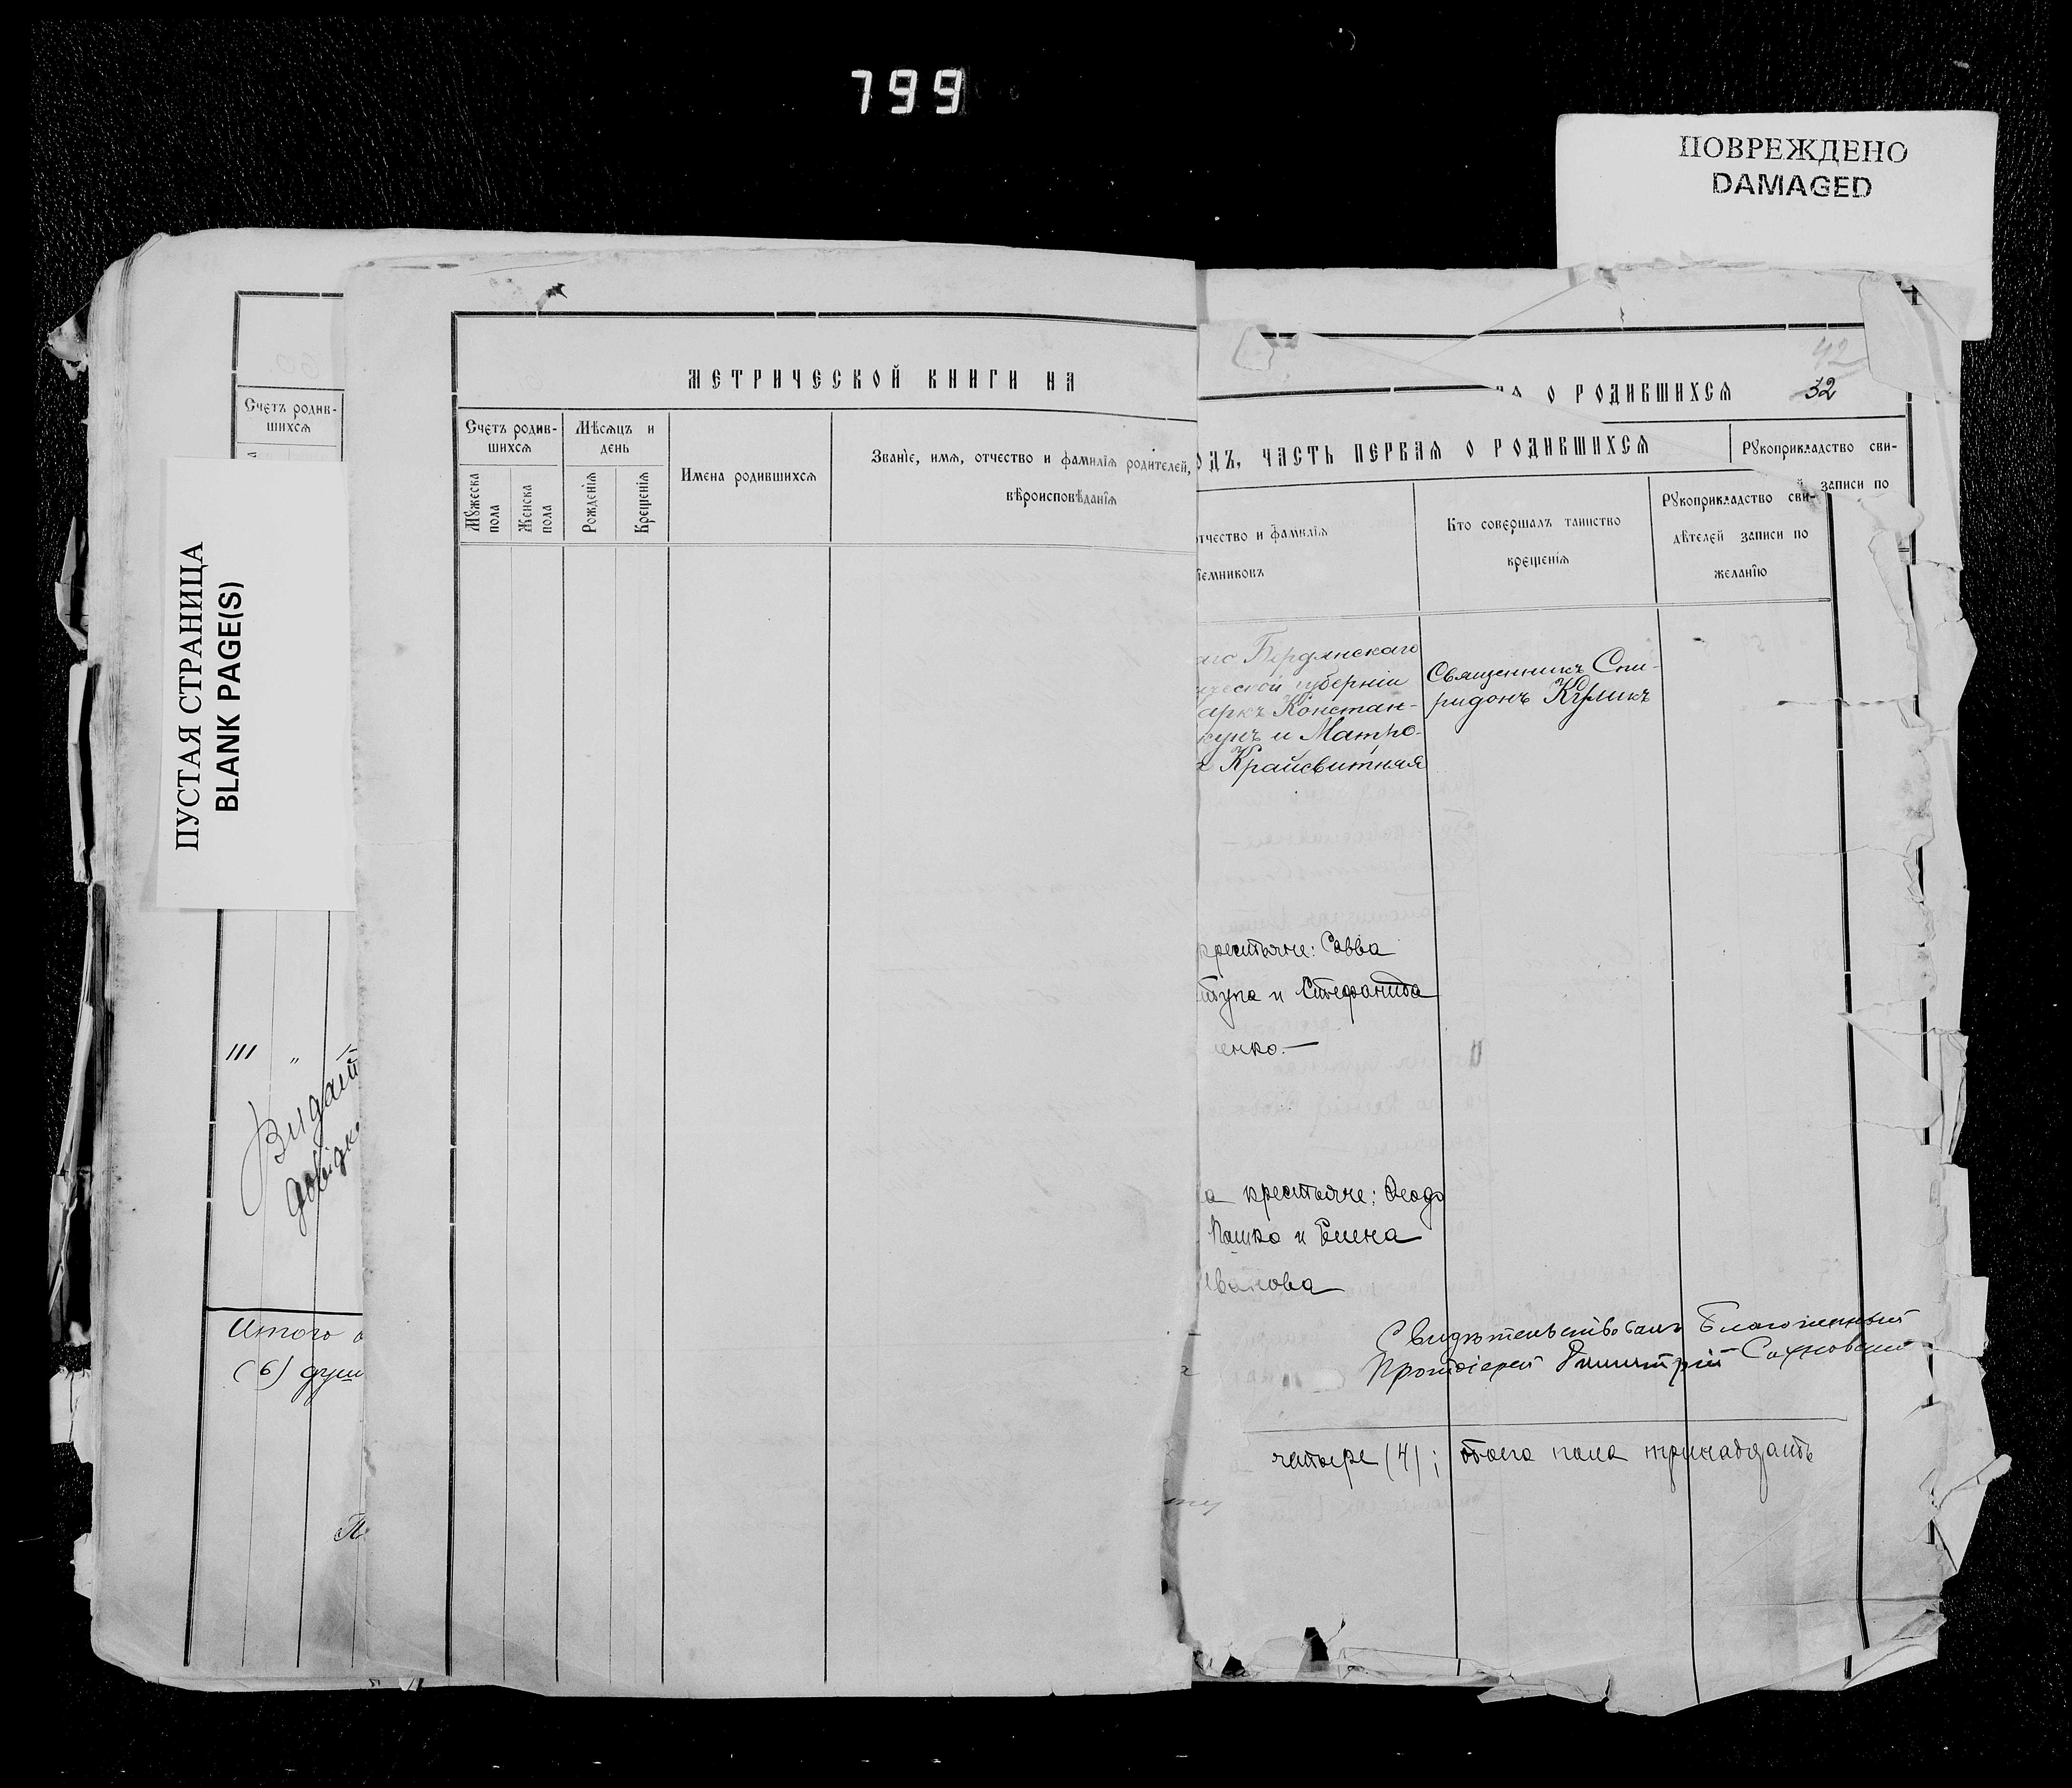 799
ПОВРЕЖДЕНО
DAMAGED
ПУСТАЯ СТРАНИЦА
BLANK PAGE(S)
Счетъ родив-
шихся
111 " 1
Итого
(6) душ
МЕТРИЧЕСКОЙ КНИГИ НА
Счетъ родив-
шихся
Мѣсяцъ и
день
Мужеска
пола
Женска
пола
Рожденія
Крещенія
Имена родившихся
Званіе, имя, отчество и фамилія родителей,
вѣроисповѣданія
О РОДИВШИХСЯ
42
32
ОДЪ, ЧАСТЬ ПЕРВАЯ О РОДИВШИХСЯ
Рукоприкладство сви-
записи по
тчество и фамилія
іемниковъ
Кто совершалъ таинство
крещенія
Рукоприкладство сви-
дѣтелей записи по
желанію
аго Бердянскаго
ической губерніи
аркъ Констан-
кунъ и Матро-
а Крайсвитная
Священникъ Спи-
ридонъ Куликъ
крестьяне: Савва
и Стефанида
енко.—
а крестьяне: Ѳеодо
Пашко и Елена
Иванова
Свидѣтельствовалъ Благочинный
Протоіерей Димитрій
четыре (4); обоего пола тринадцать